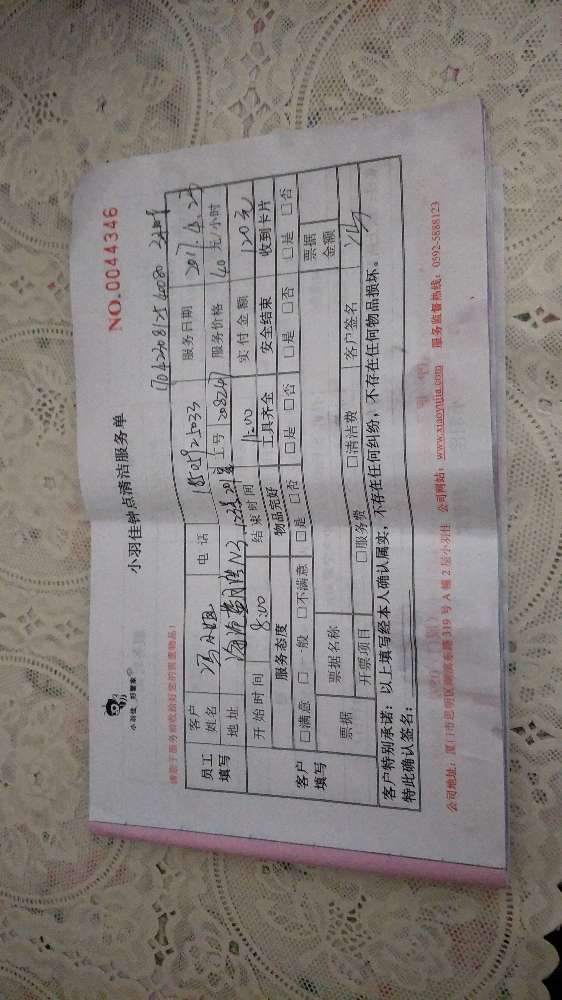 小羽佳 好管家
小羽佳钟点清洁服务单
NO.0044346
请您于服务前收拾好您的贵重物品!
员工填写
客户姓名
电话
服务日期 2017.4.23
地址
工号
服务价格 40 元/小时
开始时间 8:00
结束时间 11:00
实付金额 120元
客户填写
服务态度 物品完好 工具齐全 安全结束 收到卡片
□满意 □一般 □不满意 □是 □否 □是 □否 □是 □否 □是 □否
票据
票据名称
票据金额
开票项目 □服务费 □清洁费
客户签名
客户特别承诺:以上填写经本人确认属实,不存在任何纠纷,不存在任何物品损坏。
特此确认签名:
公司地址:厦门市思明区湖滨东路 319 号 A 幢 2 层小羽佳 公司网站:www.xiaoyujia.com 服务监督热线:0592-5888123